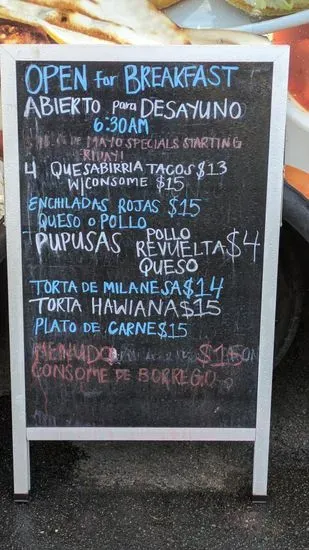 OPEN for BREAKFAST
ABIERTO para DESAYUNO
6:30AM
DE MAYO SPECIALS STARTING
4 QUESABIRRIA TACOS $13
W/CONSOME $15
ENCHILADAS ROJAS $15
QUESO O POLLO
PUPUSAS POLLO
REVUELTA $4
QUESO
TORTA DE MILANESA $14
TORTA HAWIANA $15
PLATO DE CARNE $15
MENUDO $15
CONSOME DE BORREGO